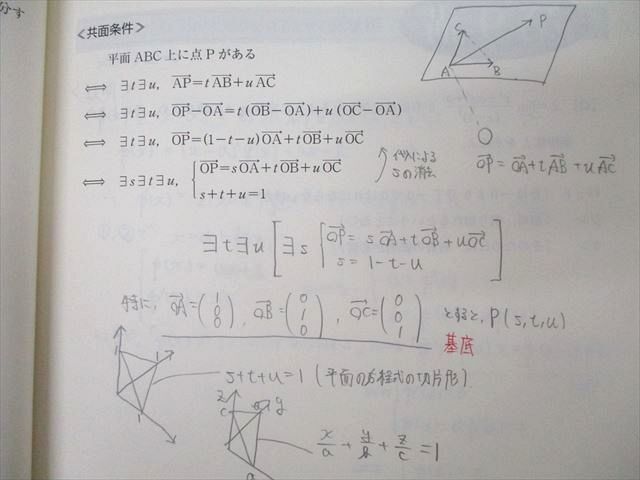 分す
<共面条件>
平面 ABC 上に点 P がある
⟺ ∃t∃u, AP=tAB+uAC
⟺ ∃t∃u, OP−OA=t(OB−OA)+u(OC−OA)
⟺ ∃t∃u, OP=(1−t−u)OA+tOB+uOC
⟺ ∃s∃t∃u, { OP=sOA+tOB+uOC
s+t+u=1
代入による
sの消去
C P
A B
O
OP=OA+tAB+uAC
∃t∃u[∃s { OP=sOA+tOB+uOC
s=1-t-u ]
特に, OA=(1 0 0), OB=(0 1 0), OC=(0 0 1) とすると, P(s,t,u)
基底
1
s+t+u=1 (平面の方程式の切片形)
z
c y
a
x/a + y/b + z/c = 1